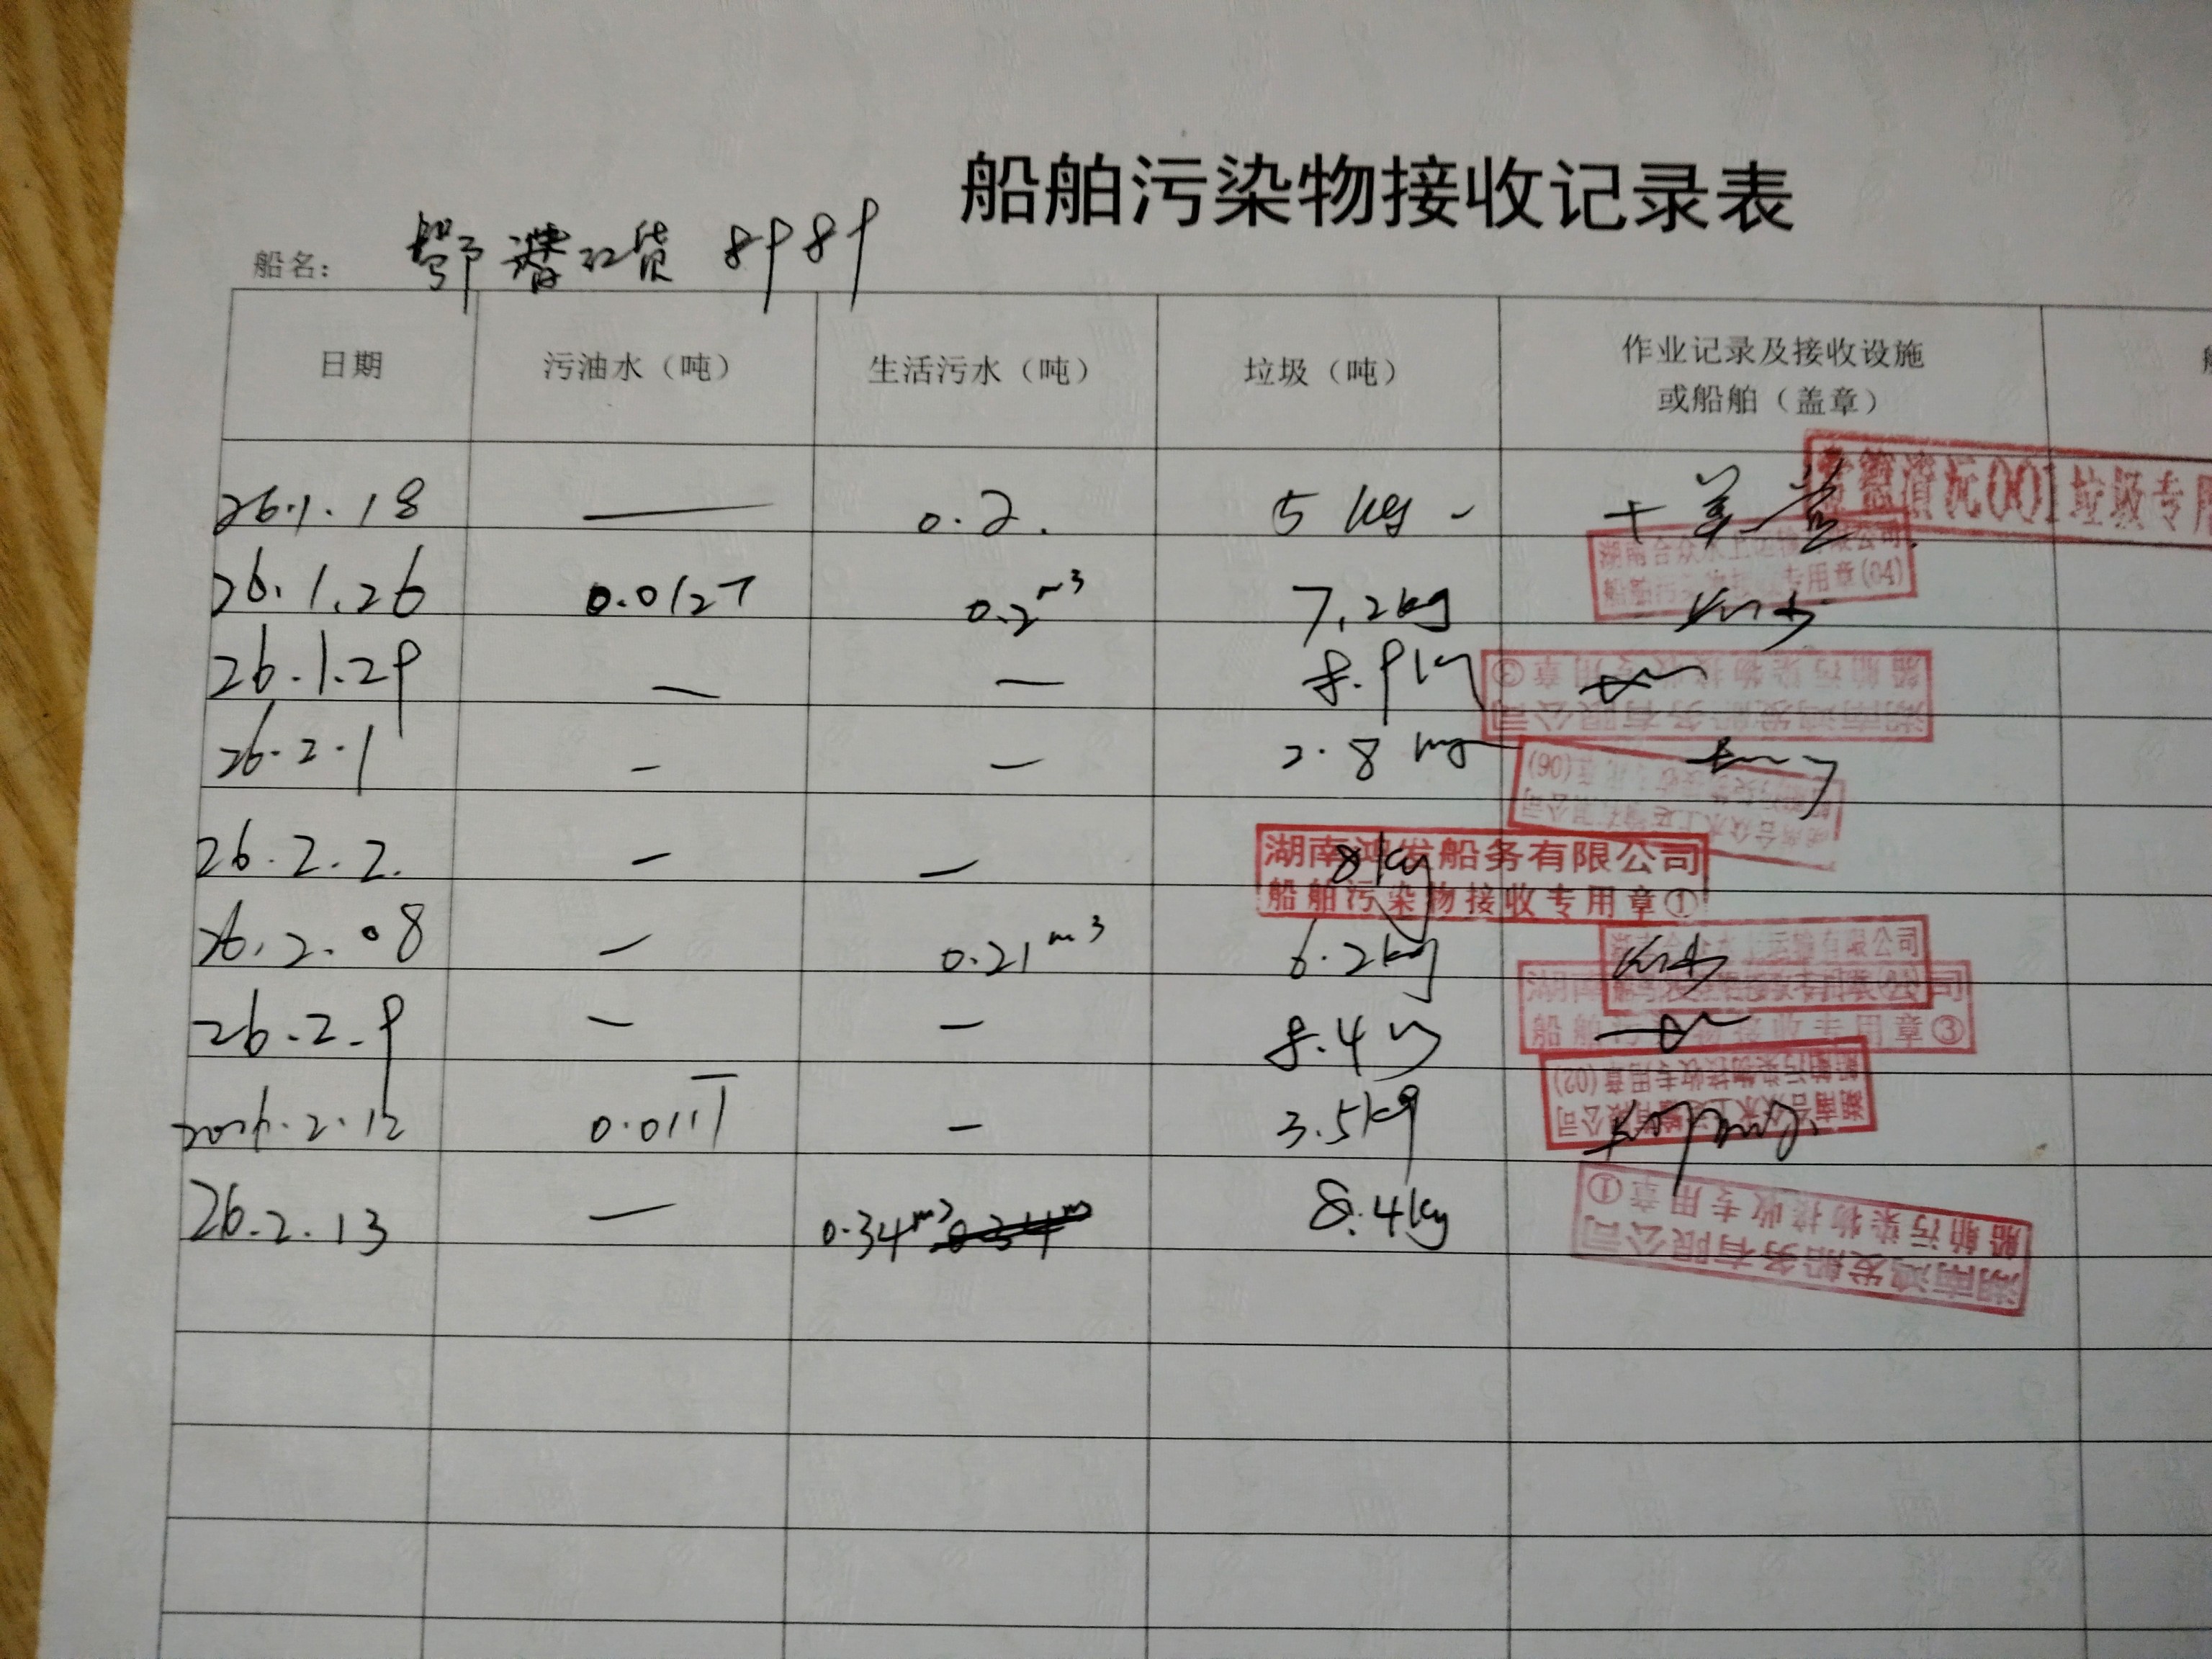 船舶污染物接收记录表
船名: 鄂潜江货 8989
日期 污油水（吨） 生活污水（吨） 垃圾（吨） 作业记录及接收设施
或船舶（盖章）
26.1.18 — 0.2. 5 kg -
001垃圾专
26.1.26 0.012T 0.2m³ 7.2kg
湖南合众水上运输有限公司
船舶污染物接收专用章(04)
26.1.29 — — 8.9kg
湖南鸿发船务有限公司
船舶污染物接收专用章③
26.2.1 - — 2.8 kg
湖南合众水上运输有限公司
(06)
26.2.2. - — 8kg
湖南鸿发船务有限公司
船舶污染物接收专用章①
26.2.08 - 0.21m³ 6.2kg
26.2.9 - - 8.4
船舶污染物接收专用章③
2026.2.12 0.01T - 3.5kg
湖南合众水上运输有限公司
船舶污染物接收专用章(02)
26.2.13 — 0.34m³ 8.4kg
湖南鸿发船务有限公司
船舶污染物接收专用章①